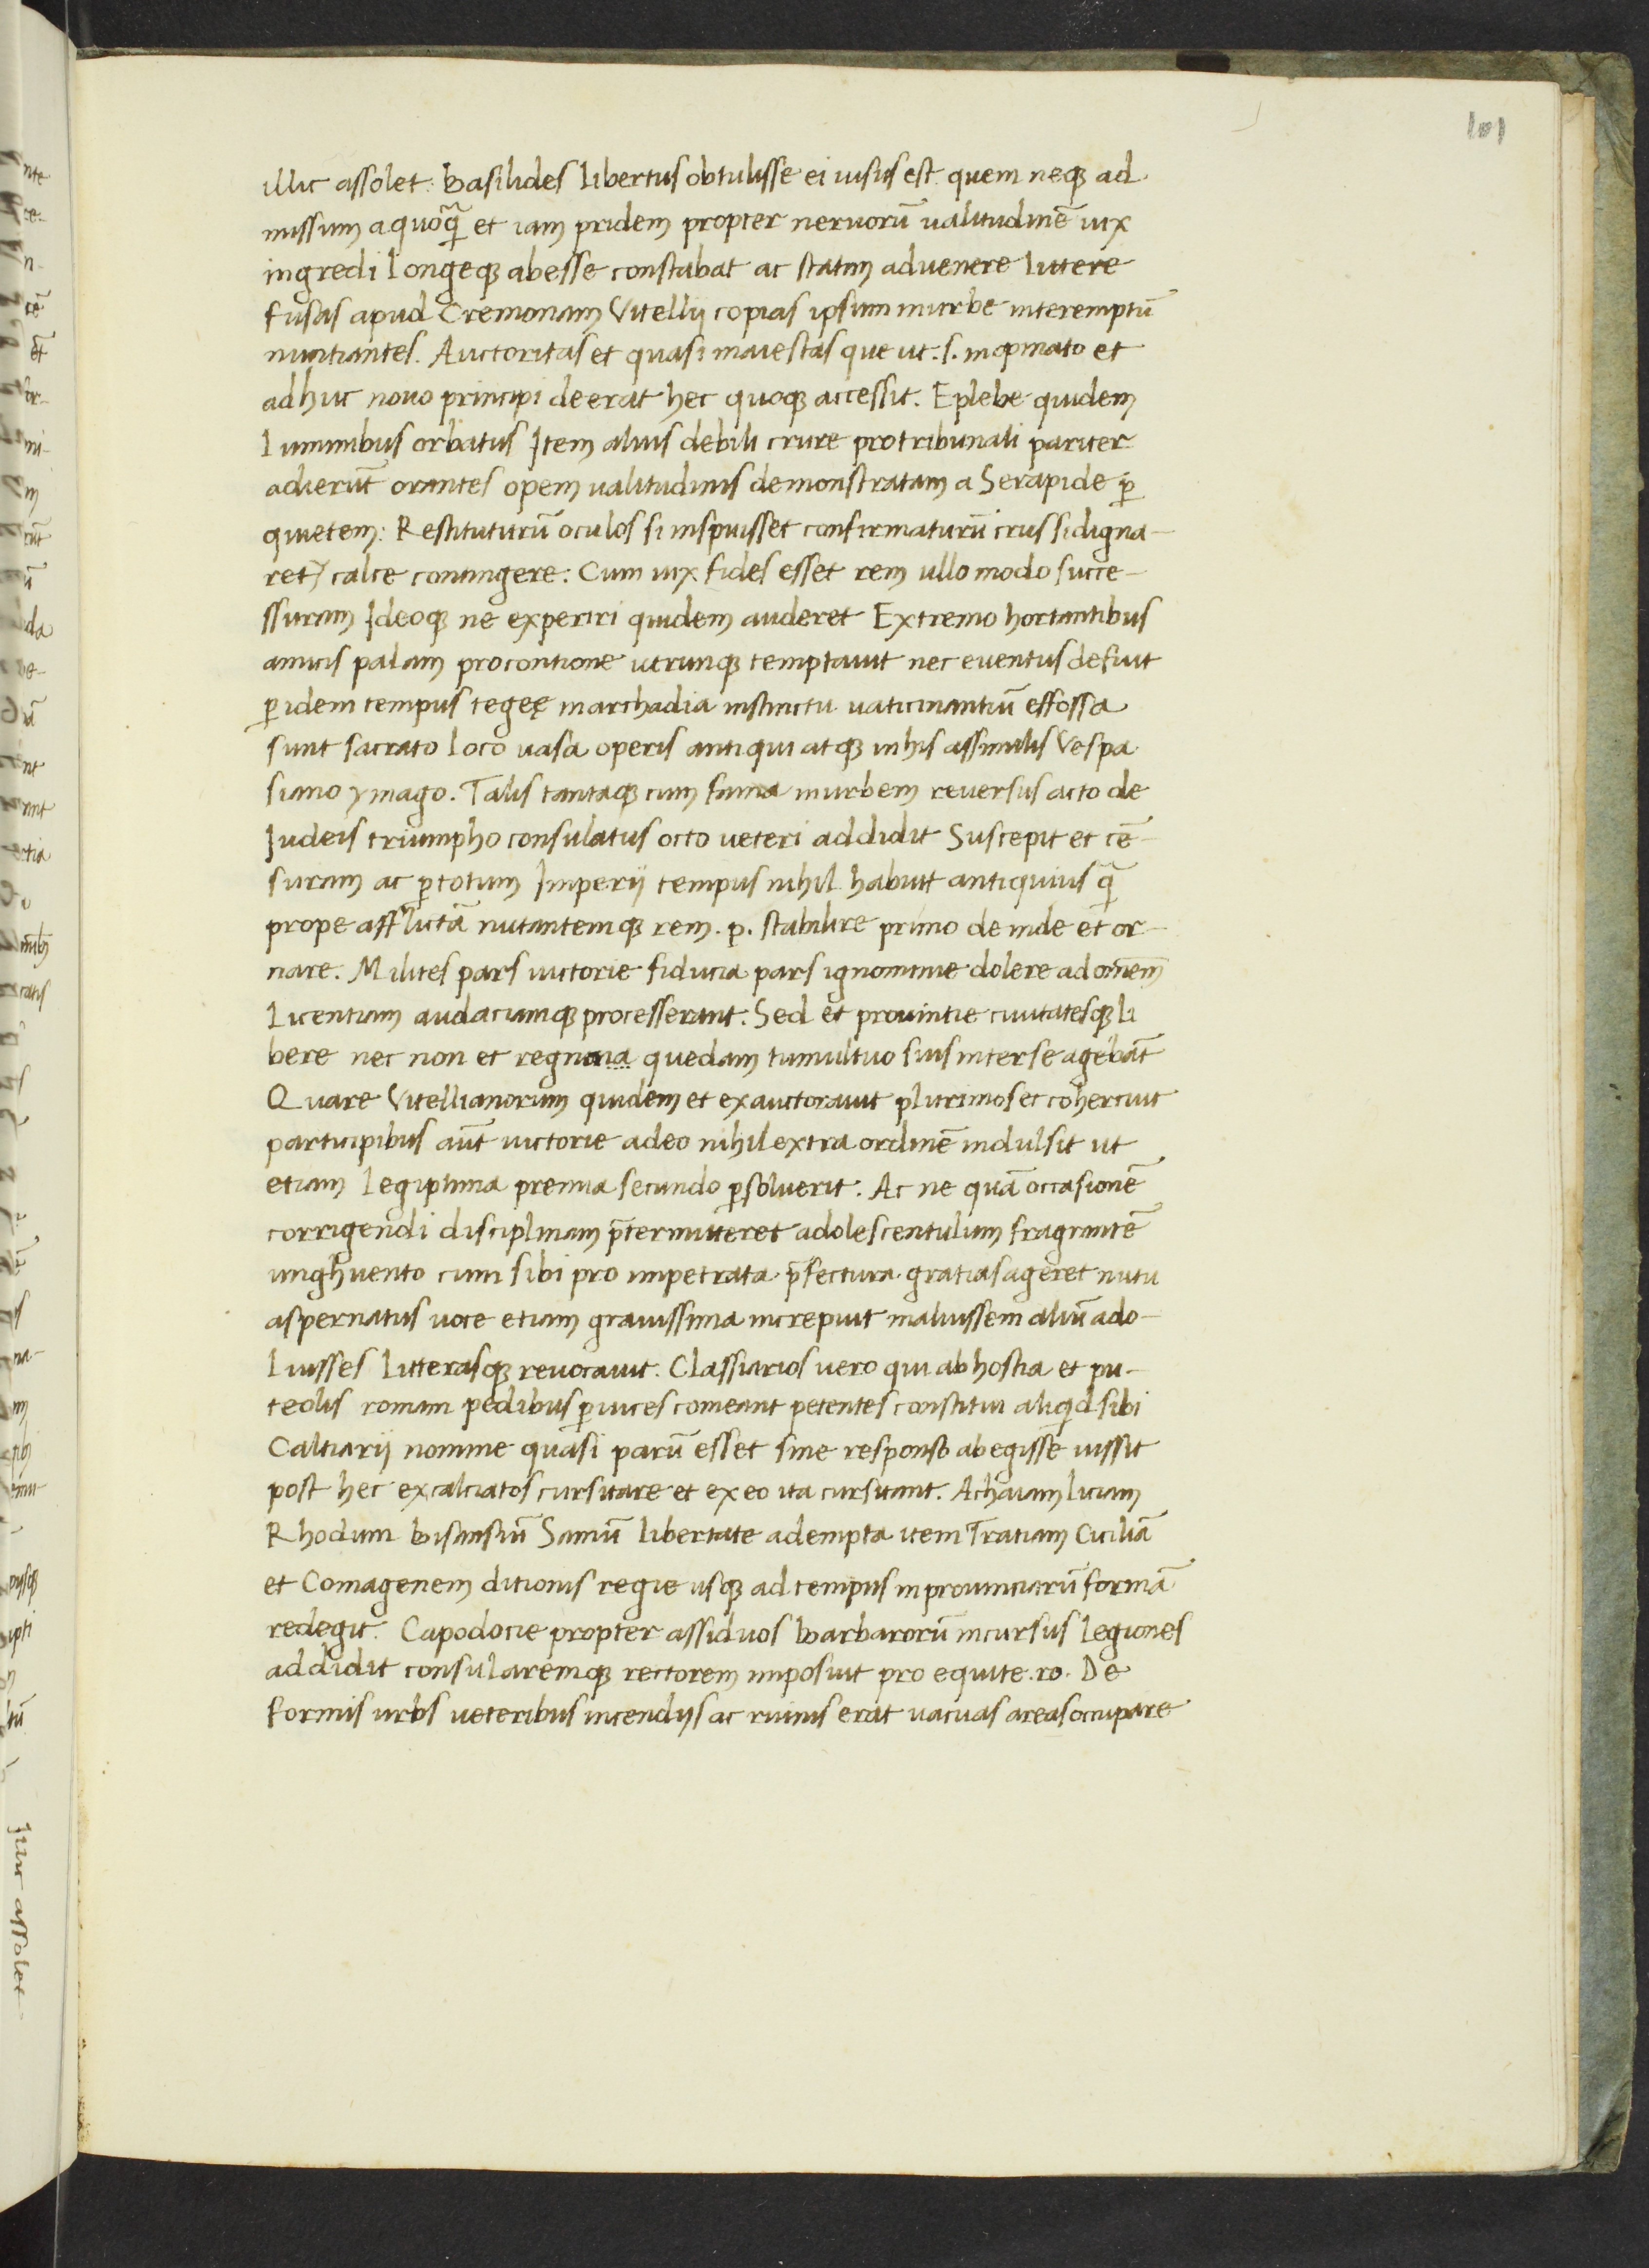 101
illic assolet: Basilides libertus obtulisse ei uisus est quem neqꝫ ad
missum a quoq̃ et iam pridem propter neruorū ualitudinē uix
ingredi longeqꝫ abesse constabat ac statim aduenere littere
fusas apud Cremonam Vitellij copias ipsum in urbe interemptū
nuntiantes. Auctoritas et quasi maiestas que ut .s. inopinato et
adhuc nouo principi deerat hec quoqꝫ accessit. E plebe quidem
luminibus orbatus Item alius debili crure pro tribunali pariter
adierūt orantes opem ualitudinis demonstratam a Serapide ꝑ
quietem: Restituturū oculos si inspuisset confirmaturū crus si digna-
ret᷑ calce contingere: Cum uix fides esset rem ullo modo succe-
ssuram Ideoqꝫ ne experiri quidem auderet Extremo hortantibus
amicis palam pro contione utrunqꝫ temptauit nec euentus defuit
ꝑ idem tempus tegeę in archadia instinctu uaticinantiū effossa
sunt sacrato loco uasa operis antiqui atqꝫ in his assimilis Vespa
siano ymago. Talis tantaqꝫ cum fama in urbem reuersus acto de
Iudeis triumpho consulatus octo ueteri addidit Suscepit et cē-
suram ac ꝑ totum Imperij tempus nihil habuit antiquius q̃
prope afflictā nutantemqꝫ rem .p. stabilire primo deinde et or-
nare. Milites pars uictorie fiducia pars ignominie dolere ad omnem̄
licentiam audaciamqꝫ processerant. Sed et prouintie ciuitatesqꝫ li
bere nec non et regnana quedam tumultuo sius inter se agebāt
Quare Vitellianorum quidem et exauctorauit plurimos et cohercuit
participibus aūt uictorie adeo nihil extra ordinē indulsit ut
etiam legiptima premia secundo ꝑsoluerit. Ac ne quā occasionē
corrigendi disciplinam p̄termitteret adolescentulum fragrantē
unghuento cum sibi pro impetrata p̄fectura gratias ageret nutu
aspernatus uoce etiam grauissima increpuit maluissem aliū ado-
luisses litterasqꝫ reuocauit. Classiarios uero qui ab hostia et pu-
teolis romam pedibus ꝑ uices comeant petentes constitui aliqd sibi
Caltiarij nomine quasi parū esset sine responso abegisse iussit
post hec excalciatos cursitare et ex eo ita cursitant. Achaiam liciam
Rhodum Bisansiū Samū libertate adempta item Tratiam Ciciliā
et Comagenem ditionis regie usqꝫ ad tempus in prouinciarū formā
redegit. Capodocie propter assiduos Barbarorū incursus legiones
addidit consularemqꝫ rectorem imposuit pro equite .ro. De
formis urbs ueteribus incendijs ac ruinis erat uacuas areas occupare